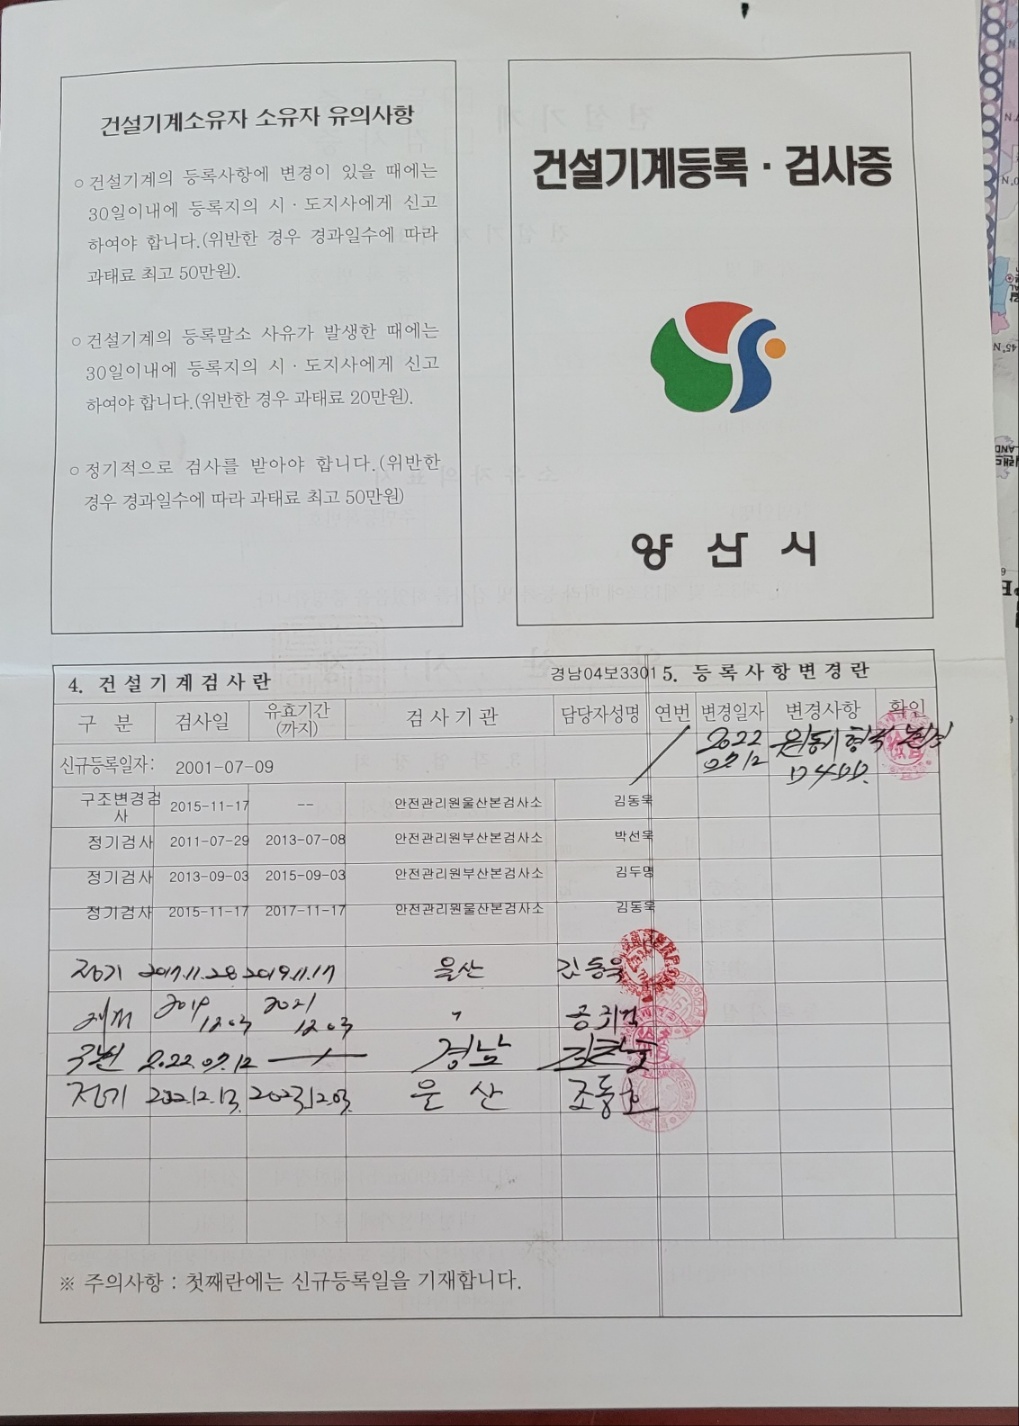 건설기계소유자 소유자 유의사항
○ 건설기계의 등록사항에 변경이 있을 때에는
30일이내에 등록지의 시·도지사에게 신고
하여야 합니다.(위반한 경우 경과일수에 따라
과태료 최고 50만원).
○ 건설기계의 등록말소 사유가 발생한 때에는
30일이내에 등록지의 시·도지사에게 신고
하여야 합니다.(위반한 경우 과태료 20만원).
○ 정기적으로 검사를 받아야 합니다.(위반한
경우 경과일수에 따라 과태료 최고 50만원)
건설기계등록·검사증
양산시
4. 건설기계검사란 경남04보3301
5. 등록사항변경란
구 분 검사일 유효기간(까지) 검사기관 담당자성명 연번 변경일자 변경사항 확인
2022 07.12 원동기형식 D4DD
신규등록일자: 2001-07-09
구조변경검사 2015-11-17 -- 안전관리원울산본검사소 김동욱
정기검사 2011-07-29 2013-07-08 안전관리원부산본검사소 박선욱
정기검사 2013-09-03 2015-09-03 안전관리원부산본검사소 김두명
정기검사 2015-11-17 2017-11-17 안전관리원울산본검사소 김동욱
정기 2017.11.28 2019.11.17 울산 김동욱
2019 12.03 2021 12.03 〃
2022.07.12 경남
정기 2022.12.13. 2023.12.03. 울산 조동호
※ 주의사항 : 첫째란에는 신규등록일을 기재합니다.